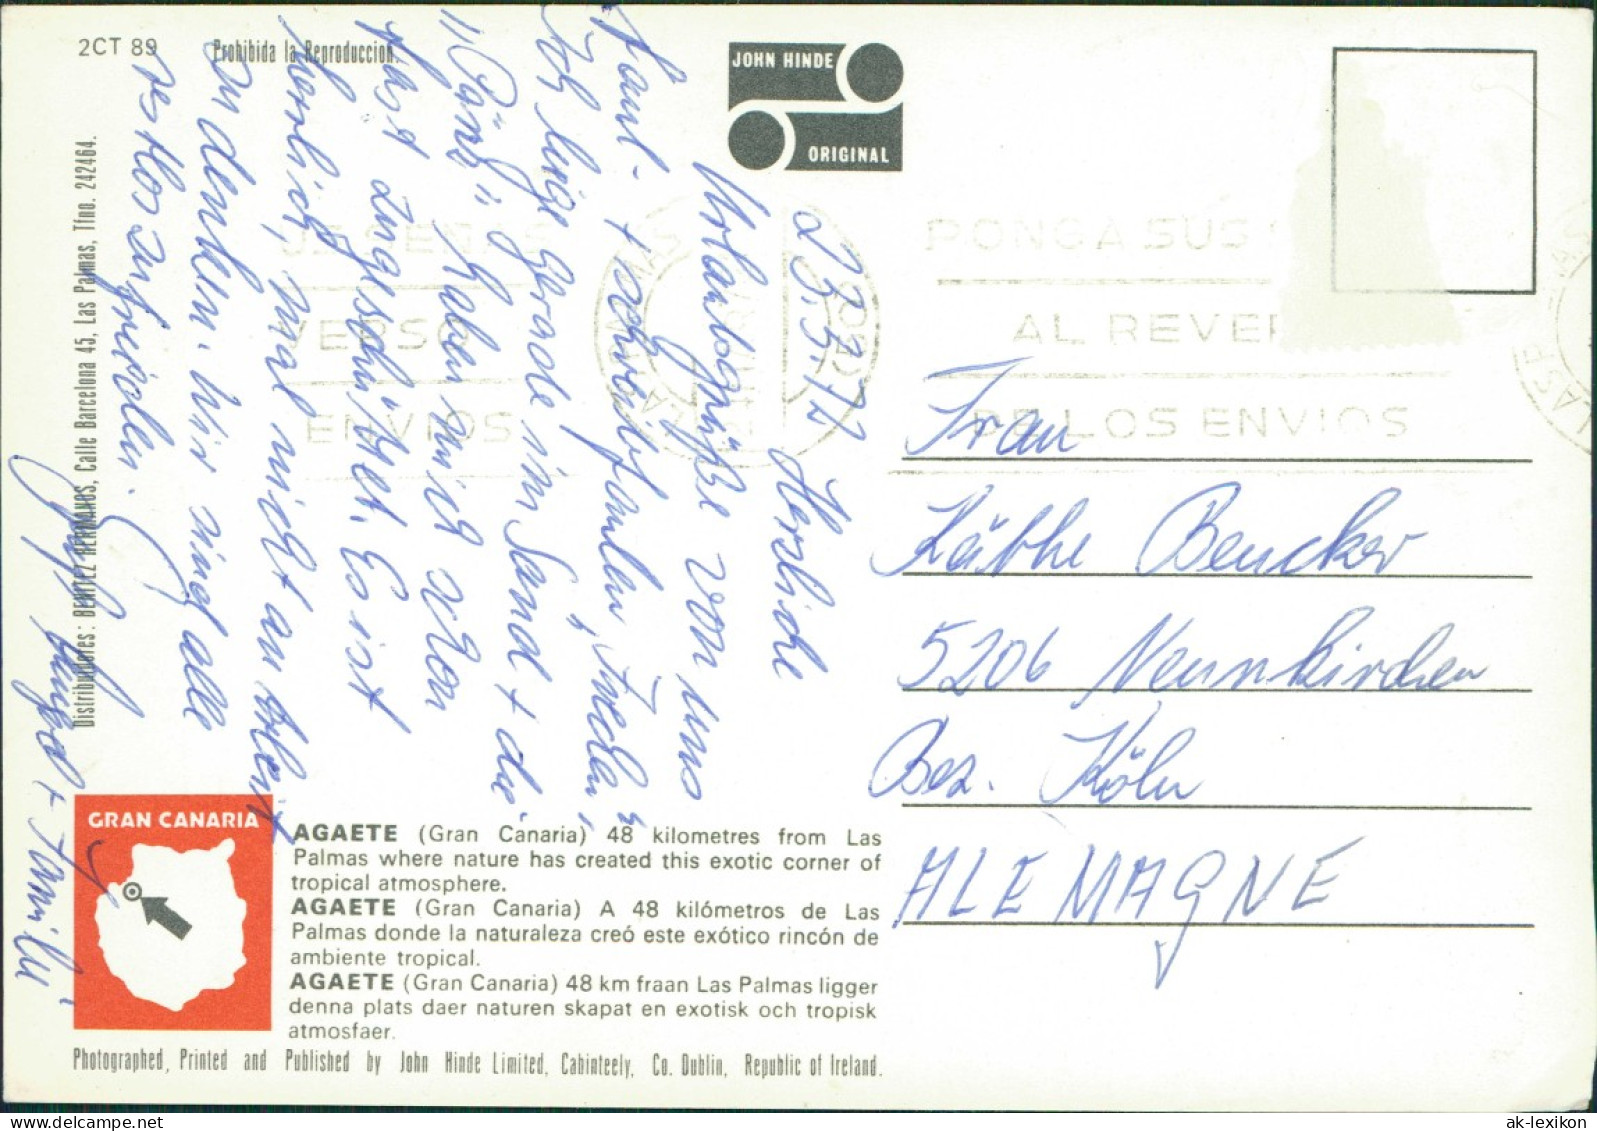 2CT 89
Prohibida la Reproduccion.
JOHN HINDE
ORIGINAL
Distribuidores: BENITEZ HERMANOS, Calle Barcelona 45, Las Palmas, Tfno. 242464.
23.5.72
Herzliche
Urlaubsgrüße von uns
Faul- + 
Ich liege gerade im Sand + die
haben mich schon
fast zugeschüttet. Es ist
herrlich, mal nicht an Arbeit
zu denken. Wir sind alle
restlos zufrieden.
+ Familie
PONGA SUS
AL REVER
DE LOS ENVIOS
US SEÑAS
VERSO
ENVIOS
Frau
Käthe Bencker
5206 Neunkirchen
Bez. Köln
ALEMAGNE
GRAN CANARIA
AGAETE (Gran Canaria) 48 kilometres from Las
Palmas where nature has created this exotic corner of
tropical atmosphere.
AGAETE (Gran Canaria) A 48 kilómetros de Las
Palmas donde la naturaleza creó este exótico rincón de
ambiente tropical.
AGAETE (Gran Canaria) 48 km fraan Las Palmas ligger
denna plats daer naturen skapat en exotisk och tropisk
atmosfaer.
Photographed, Printed and Published by John Hinde Limited, Cabinteely, Co. Dublin, Republic of Ireland.
ak-lexikon